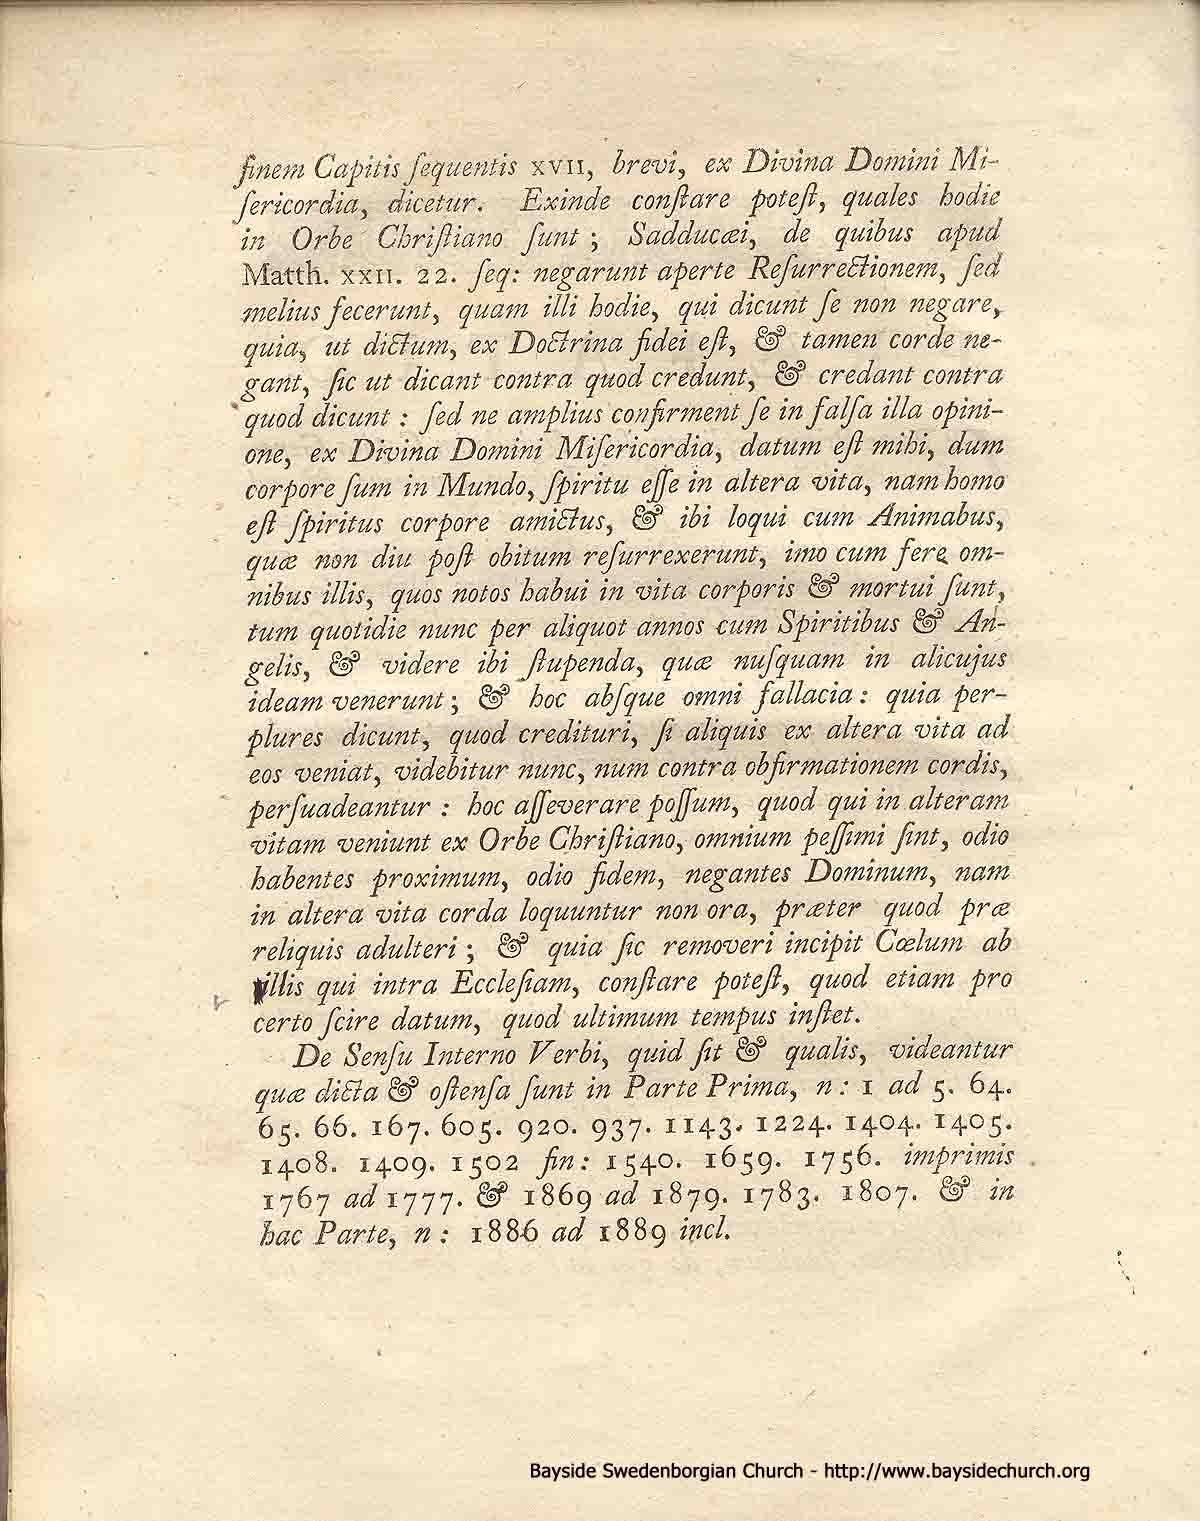 finem Capitis ſequentis XVII, brevi, ex Divina Domini Mi-
ſericordia, dicetur. Exinde conſtare poteſt, quales hodie
in Orbe Chriſtiano ſunt; Sadducæi, de quibus apud
Matth. XXII. 22. ſeq: negarunt aperte Reſurrectionem, ſed
melius fecerunt, quam illi hodie, qui dicunt ſe non negare,
quia, ut dictum, ex Doctrina fidei eſt, & tamen corde ne-
gant, ſic ut dicant contra quod credunt, & credant contra
quod dicunt: ſed ne amplius confirment ſe in falſa illa opini-
one, ex Divina Domini Miſericordia, datum eſt mihi, dum
corpore ſum in Mundo, ſpiritu eſſe in altera vita, nam homo
eſt ſpiritus corpore amictus, & ibi loqui cum Animabus,
quæ non diu poſt obitum reſurrexerunt, imo cum fere om-
nibus illis, quos notos habui in vita corporis & mortui ſunt,
tum quotidie nunc per aliquot annos cum Spiritibus & An-
gelis, & videre ibi ſtupenda, quæ nuſquam in alicujus
ideam venerunt; & hoc abſque omni fallacia: quia per-
plures dicunt, quod credituri, ſi aliquis ex altera vita ad
eos veniat, videbitur nunc, num contra obfirmationem cordis,
perſuadeantur: hoc aſſeverare poſſum, quod qui in alteram
vitam veniunt ex Orbe Chriſtiano, omnium peſſimi ſint, odio
habentes proximum, odio fidem, negantes Dominum, nam
in altera vita corda loquuntur non ora, præter quod præ
reliquis adulteri; & quia ſic removeri incipit Cœlum ab
illis qui intra Eccleſiam, conſtare poteſt, quod etiam pro
certo ſcire datum, quod ultimum tempus inſtet.
De Senſu Interno Verbi, quid ſit & qualis, videantur
quæ dicta & oſtenſa ſunt in Parte Prima, n: 1 ad 5. 64.
65. 66. 167. 605. 920. 937. 1143. 1224. 1404. 1405.
1408. 1409. 1502 fin: 1540. 1659. 1756. imprimis
1767 ad 1777. & 1869 ad 1879. 1783. 1807. & in
hac Parte, n: 1886 ad 1889 incl.
Bayside Swedenborgian Church - http://www.baysidechurch.org